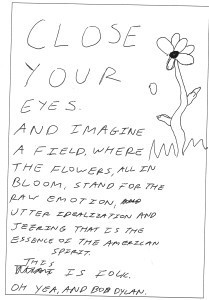 CLOSE
YOUR
EYES.
AND IMAGINE
A FIELD, WHERE
THE FLOWERS, ALL IN
BLOOM, STAND FOR THE
RAW EMOTION,
UTTER IDEALIZATION AND
JEERING THAT IS THE
ESSENCE OF THE AMERICAN
SPIRIT.
THIS
IS FOLK.
OH YEA, AND BOB DYLAN.